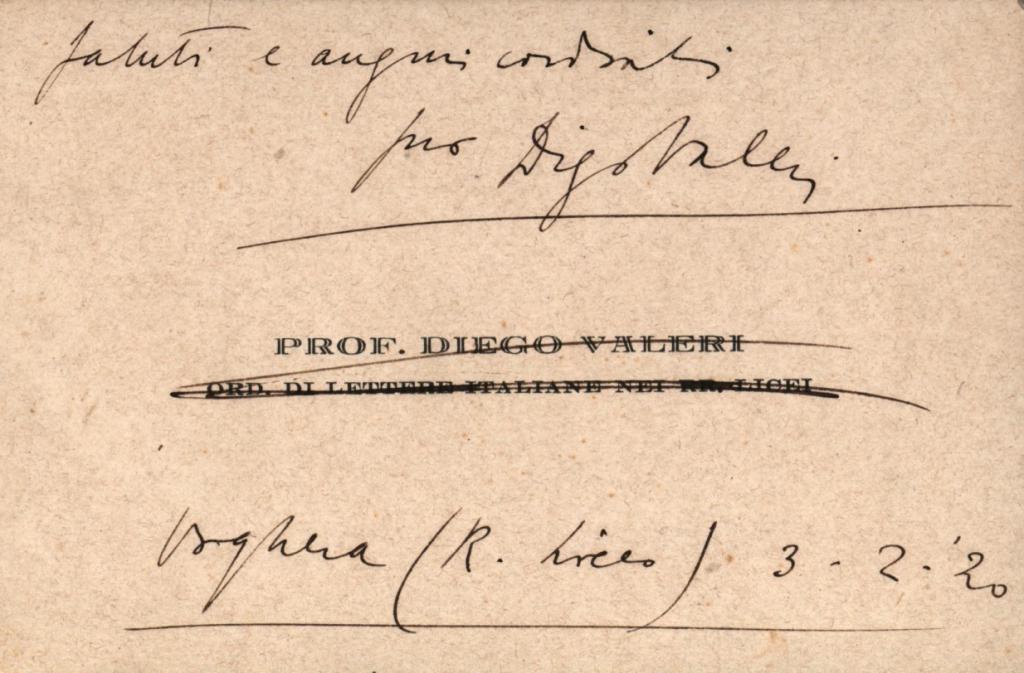 Saluti e auguri cordiali
suo Diego Valeri
PROF. DIEGO VALERI
ORD. DI LETTERE ITALIANE NEI RR. LICEI
Voghera (R. Liceo) 3-2-'20